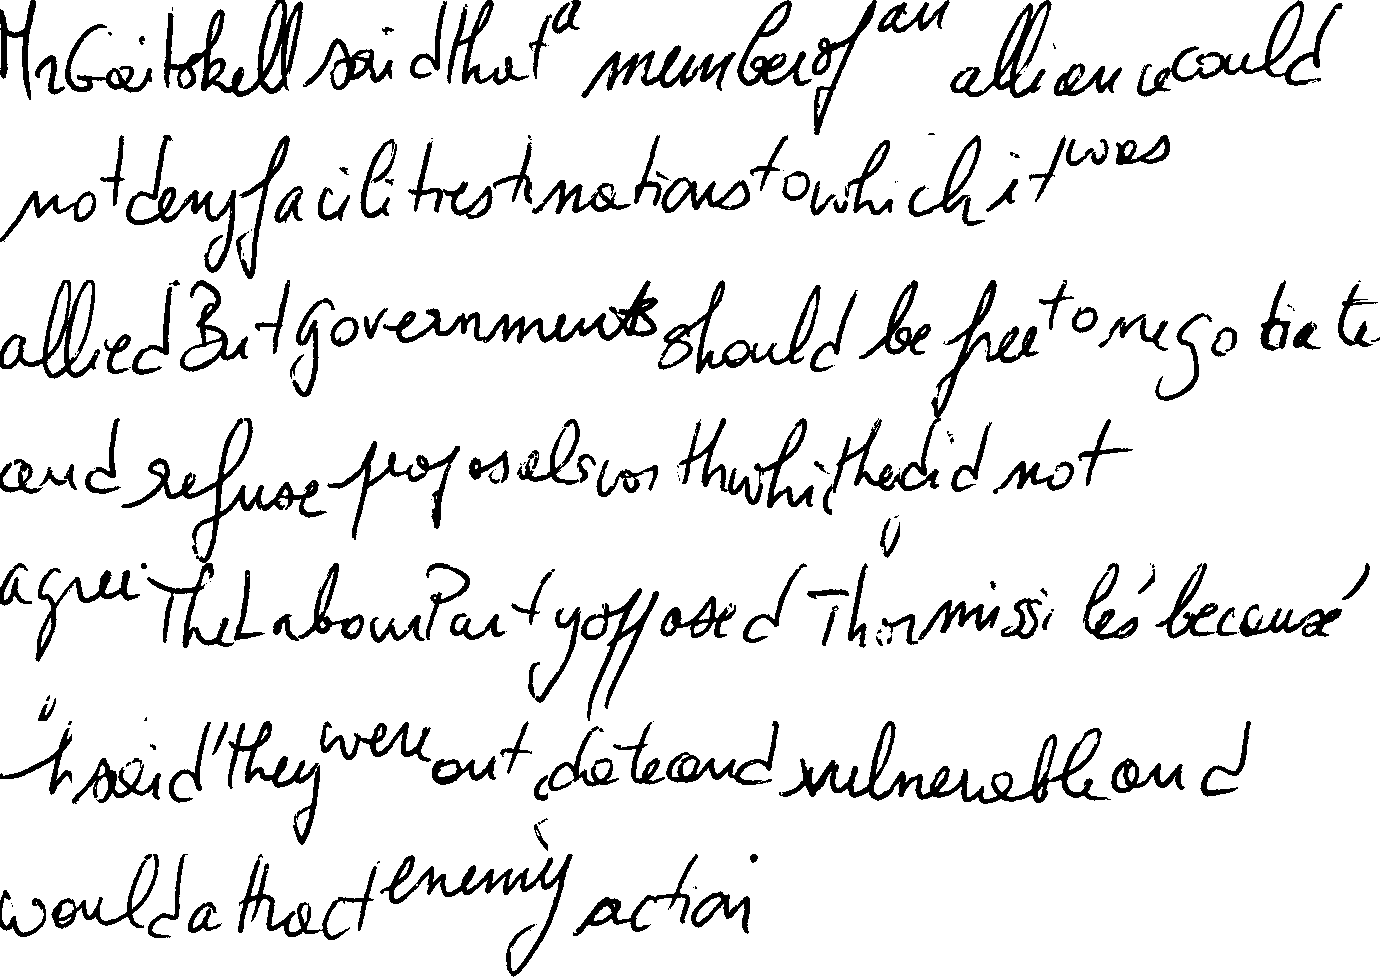 Mr Gaitskell said that a member of an alliance could
not deny facilities to nations to which it was
allied But governments should be free to negotiate
and refuse proposals with which the did not
agree. The Labour Party opposed Thor missiles because
h said they were out date and vulnerable and
would attract enemy action